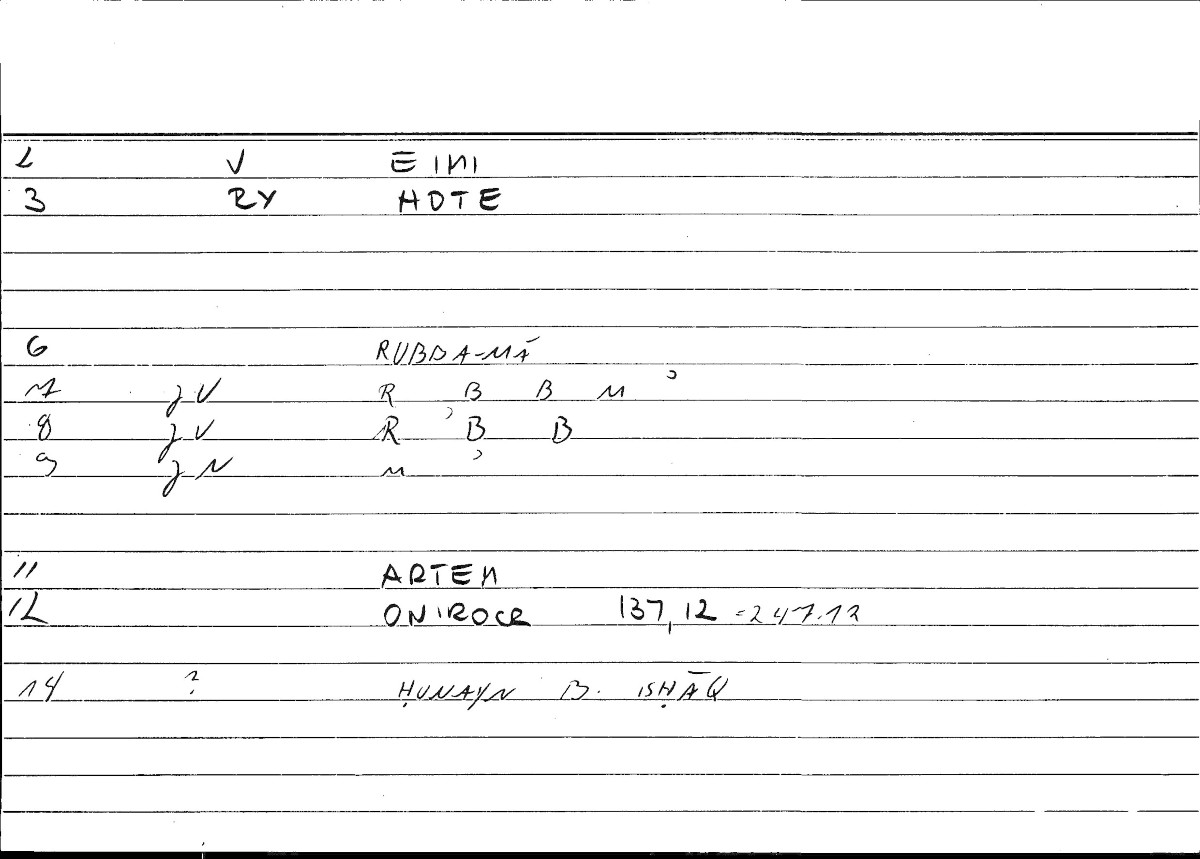 2 V E INI
3 RY HOTE
6 RUBBA-MĀ
7 jV R B B M ʾ
8 jV R ʾ B B
9 jN M ʾ
11 ARTEM
12 ONIROCR 137,12 =247.12
14 ? ḤUNAYN B. ISḤĀQ